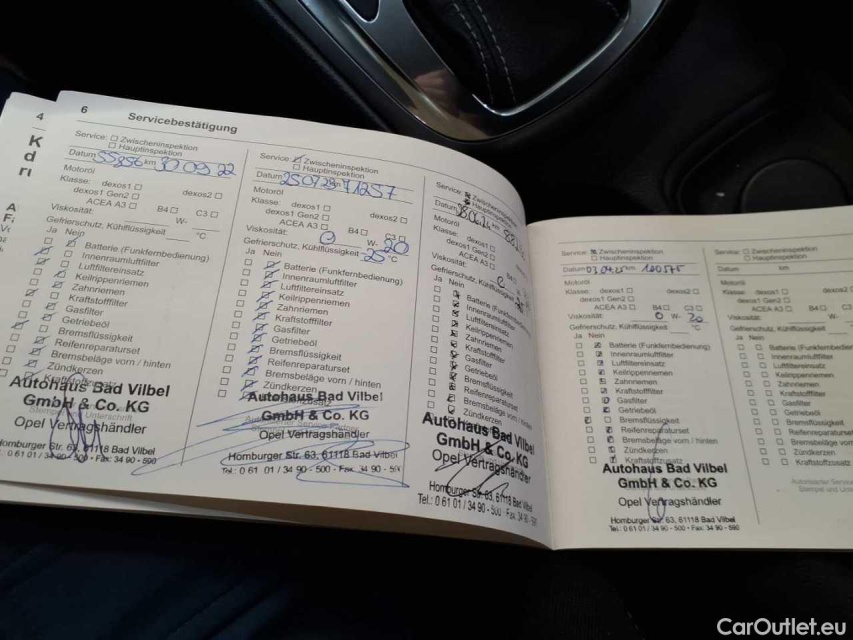 4
K
d
6
Servicebestätigung
Service: ☐ Zwischeninspektion
☐ Hauptinspektion
Datum 55856 km 30 09 22
Motoröl
Klasse: dexos1 ☐ dexos2 ☐
dexos1 Gen2 ☐
ACEA A3 ☐ B4 ☐ C3 ☐
Viskosität: W-
Gefrierschutz, Kühlflüssigkeit °C
Ja Nein
Batterie (Funkfernbedienung)
Innenraumluftfilter
Luftfiltereinsatz
Keilrippenriemen
Zahnriemen
Kraftstofffilter
Gasfilter
Getriebeöl
Bremsflüssigkeit
Reifenreparaturset
Bremsbeläge vorn / hinten
Zündkerzen
Autohaus Bad Vilbel
GmbH & Co. KG
Opel Vertragshändler
Homburger Str. 63, 61118 Bad Vilbel
0 61 01 / 34 90 - 500 • Fax: 34 90 - 590
Service: ☑ Zwischeninspektion
☐ Hauptinspektion
Datum 25 07 23 km 71257
Motoröl
Klasse: dexos1 ☐ dexos2 ☐
dexos1 Gen2 ☐
ACEA A3 ☐ B4 ☐ C3 ☐
Viskosität: 0 W- 20
Gefrierschutz, Kühlflüssigkeit -25 °C
Ja Nein
Batterie (Funkfernbedienung)
Innenraumluftfilter
Luftfiltereinsatz
Keilrippenriemen
Zahnriemen
Kraftstofffilter
Gasfilter
Getriebeöl
Bremsflüssigkeit
Reifenreparaturset
Bremsbeläge vorn / hinten
Zündkerzen
Autohaus Bad Vilbel
GmbH & Co. KG
Opel Vertragshändler
Homburger Str. 63, 61118 Bad Vilbel
Tel.: 0 61 01 / 34 90 - 500 - Fax: 34 90 - 59
Service: Zwischeninspektion
Hauptinspektion
Datum
Motoröl
Klasse: dexos1 ☐
dexos1 Gen2 ☐
ACEA A3 ☐
Viskosität:
Gefrierschutz, Kühlflüssigkeit
Ja Nein
Batterie (Funkfernbedienung
Innenraumluftfilter
Luftfiltereinsatz
Keilrippenriemen
Zahnriemen
Kraftstofffilter
Gasfilter
Getriebeöl
Bremsflüssigkeit
Reifenreparaturset
Bremsbeläge vorn / hinten
Zündkerzen
Autohaus Bad Vilbel
GmbH & Co. KG
Opel Vertragshändler
Homburger Str. 63, 61118 Bad Vilbel
Tel.: 0 61 01 / 34 90 - 500 - Fax: 34 90 - 590
Service: ☒ Zwischeninspektion
☐ Hauptinspektion
Datum 03.04.25 km
Motoröl
Klasse: dexos1 ☐ dexos2 ☐
dexos1 Gen2 ☐
ACEA A3 ☐ B4 ☐ C3 ☐
Viskosität: 0 W- 20
Gefrierschutz, Kühlflüssigkeit °C
Ja Nein
Batterie (Funkfernbedienung)
Innenraumluftfilter
Luftfiltereinsatz
Keilrippenriemen
Zahnriemen
Kraftstofffilter
Gasfilter
Getriebeöl
Bremsflüssigkeit
Reifenreparaturset
Bremsbeläge vorn / hinten
Zündkerzen
Kraftstoffzusatz
Autohaus Bad Vilbel
GmbH & Co. KG
Opel Vertragshändler
Homburger Str. 63, 61118 Bad Vilbel
Tel.: 0 61 01 / 34 90 - 500 - Fax: 34 90 - 590
Service: ☐ Zwischeninspektion
☐ Hauptinspektion
Datum km
Motoröl
Klasse: dexos1 ☐ dexos2
dexos1 Gen2 ☐
ACEA A3 ☐ B4 ☐
Viskosität: W-
Gefrierschutz, Kühlflüssigkeit
Ja Nein
Batterie (Funkfernbedienung
Innenraumluftfilter
Luftfiltereinsatz
Keilrippenriemen
Zahnriemen
Kraftstofffilter
Gasfilter
Getriebeöl
Bremsflüssigkeit
Reifenreparaturset
Bremsbeläge vorn
Zündkerzen
Kraftstoffzusatz
CarOutlet.eu